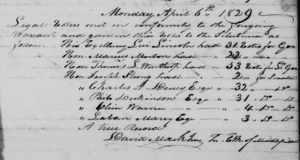 Monday April 6th 1829
Legal Voters met in conformity to the foregoing
Warrant and gave in their Votes to the Selectmen as
follows His Excellency Levi Lincoln had 31 Votes for Gov
Hon Marcus Morton had 22
Hon Thomas L Winthrop had 33 Votes for Lt Gov
Hon Joseph Strong had 2 for Senator
" Charles A Dewey Esqr " 32
" Phila Dickinson Esq " 31
" Oliver Warner " 4
" Laban Marcy Esq " 3
A True Record
David Mack Jun T Clk of Middlefield